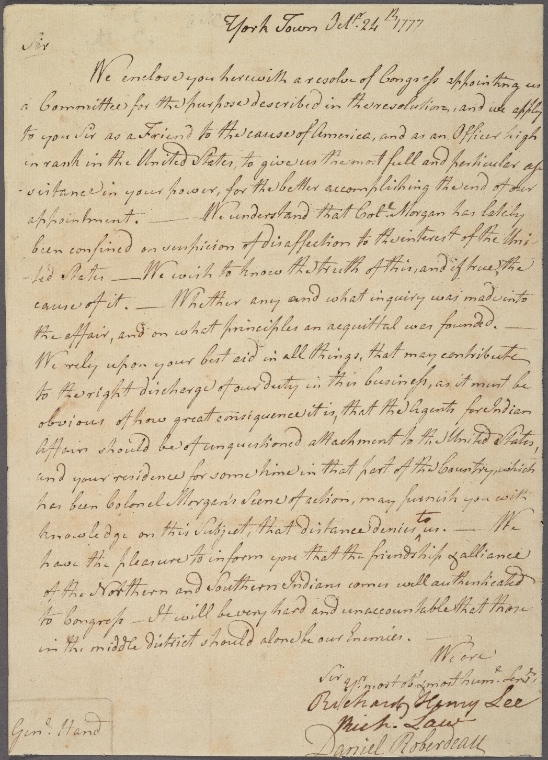 York Town Octr. 24th 1777
Sir
We enclose you herewith a resolve of Congress appointing us
a Committee for the purpose described in the resolution, and we apply
to you Sir as a Friend to the cause of America, and as an Officer high
in rank in the United States, to give us the most full and particular as
-sistance in your power, for the better accomplishing the end of our
appointment. — We understand that Colo. Morgan has lately
been confined on suspicion of disaffection to the interest of the Uni-
ted States — We wish to know the truth of this, and if true, the
cause of it. — Whether any and what inquiry was made into
the affair, and on what principles an acquittal was founded. —
We rely upon your best aid in all things, that may contribute
to the right discharge of our duty in this business, as it must be
obvious of how great consequence it is, that the Agents for Indian
Affairs should be of unquestioned attachment to the United States,
and your residence for some time in that part of the Country, which
has been Colonel Morgan's Scene of action, may furnish you with
knowledge on this Subject, that distance denies to us. — We
have the pleasure to inform you that the friendship & alliance
of the Northern and Southern Indians comes well authenticated
to Congress — It will be very hard and unaccountable that those
in the middle district should alone be our Enemies. —
We are
Sir
yr. most obt. & most humt. Servts.
Richard Henry Lee
Rich. Law
Daniel Roberdeau
Genl. Hand